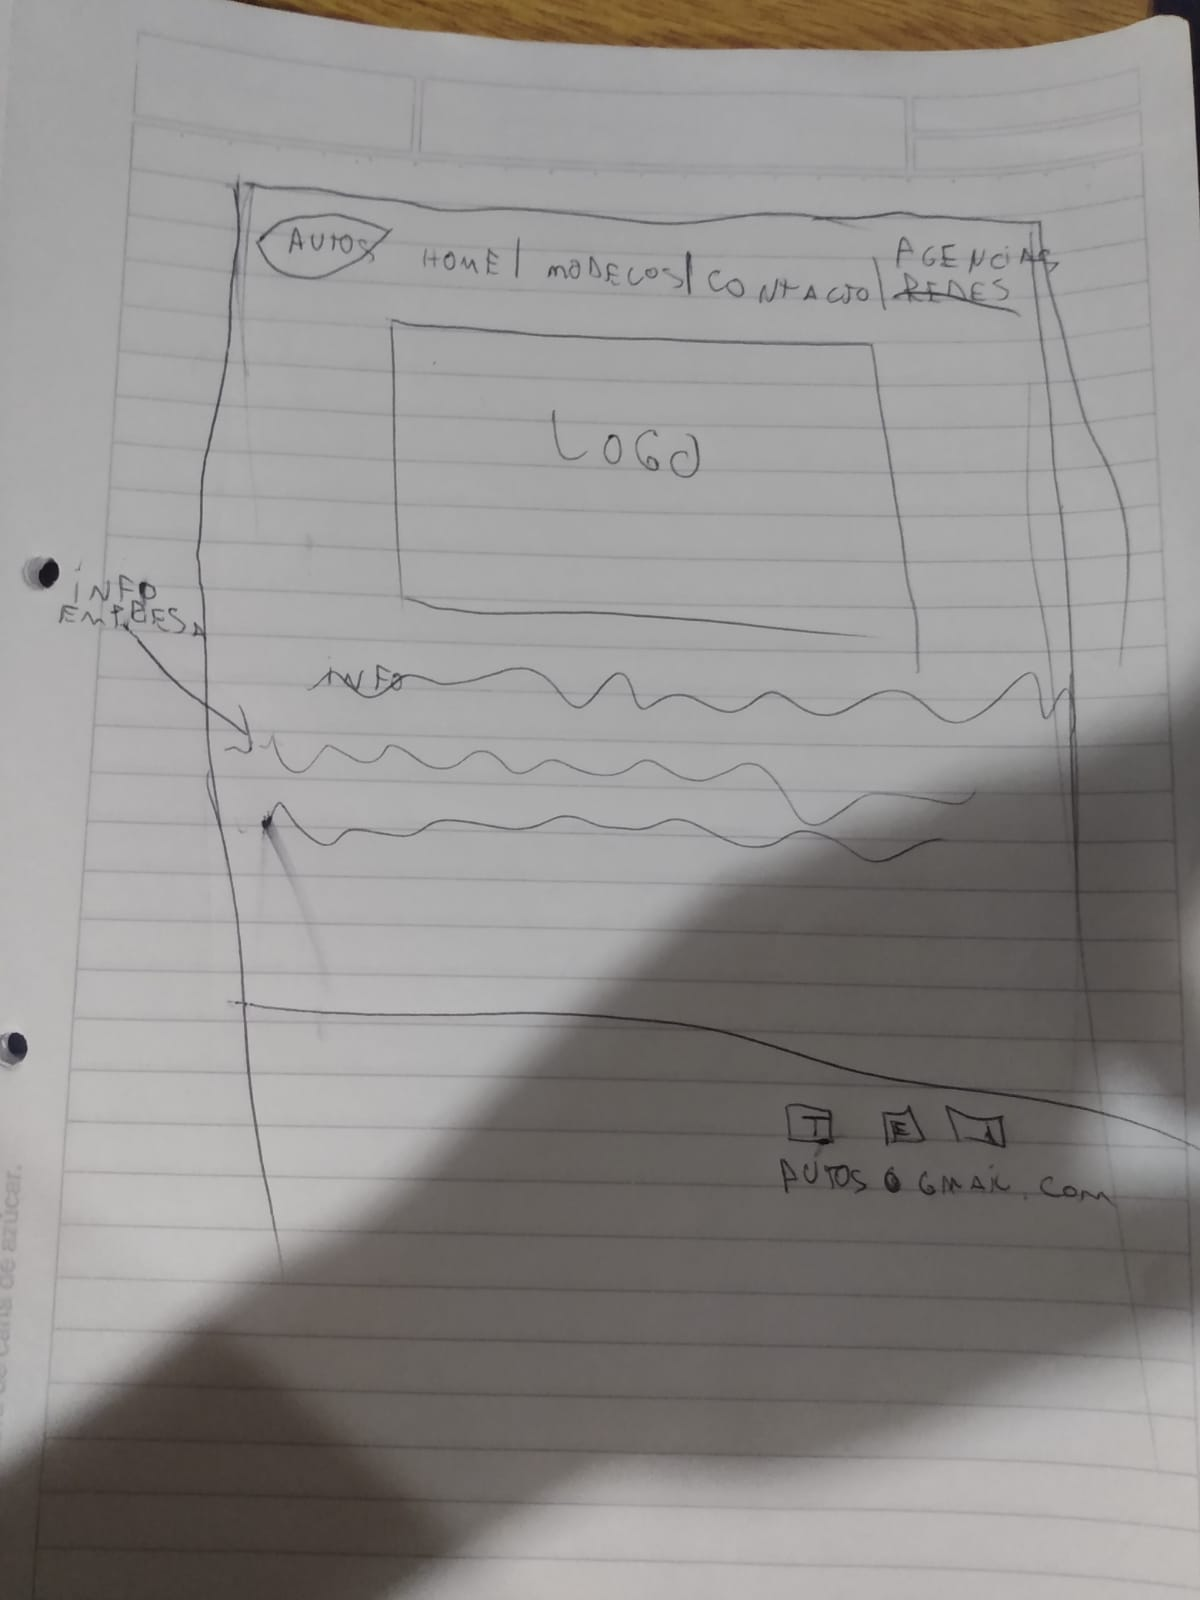 AUTOS HOME | MODELOS | CONTACTO | AGENCIAS
REDES
LOGO
INFO
EMPRESA
INFO
T F I
AUTOS@GMAIL.COM
de caña de azúcar.